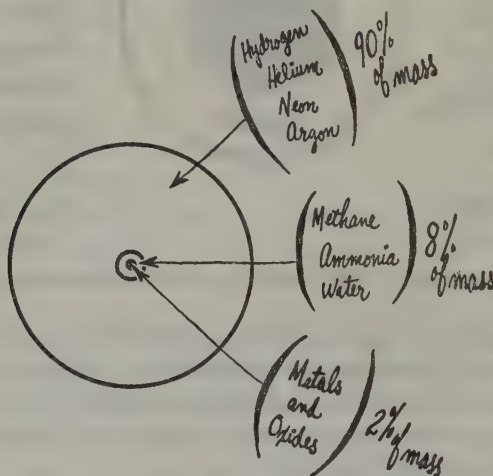 Hydrogen
Helium
Neon
Argon
90%
of mass
Methane
Ammonia
Water
8%
of mass
Metals
and
Oxides
2%
of mass